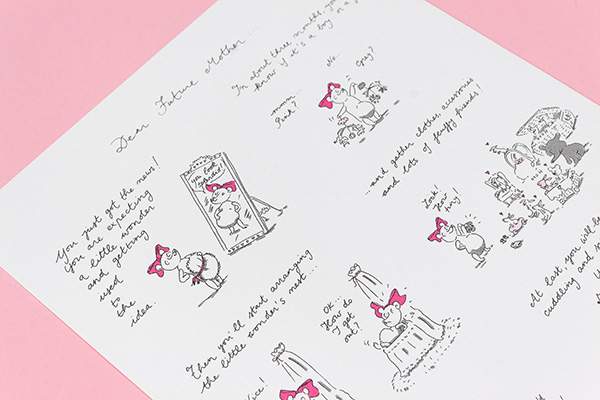 Dear Future Mother...
You just got the news!
you are expecting
a little wonder
and getting
used
to
the
idea.
you look
splendid!
In about three months, you
know if it's a boy or a g
mmm
Pink?
No..
Grey?
...and gather clothes, accessories
and lots of fluffy friends!
Look!
How
tiny!
Then you'll start arranging
the little wonder's nest...
OK..
How do
I get
out?
At last, you will be
cuddling and